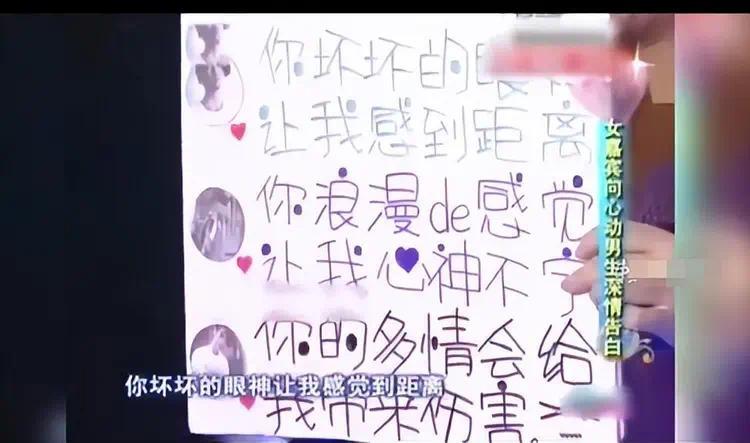 你坏坏的眼
让我感到距离
你浪漫de感觉
让我心神不宁
你的多情会给
我带来伤害
你坏坏的眼神让我感觉到距离
女嘉宾向心动男生深情告白